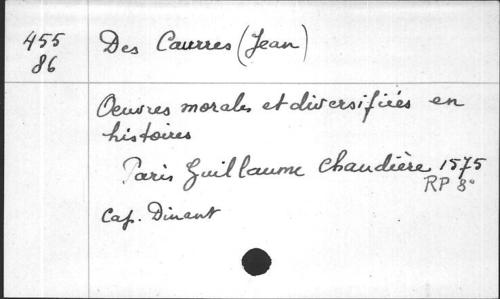 455
86
Des Caurres (Jean)
Oeuvres morales et diversifiées en
histoires
Paris Guillaume Chaudière 1575
RP 8°
Cap. Dinant